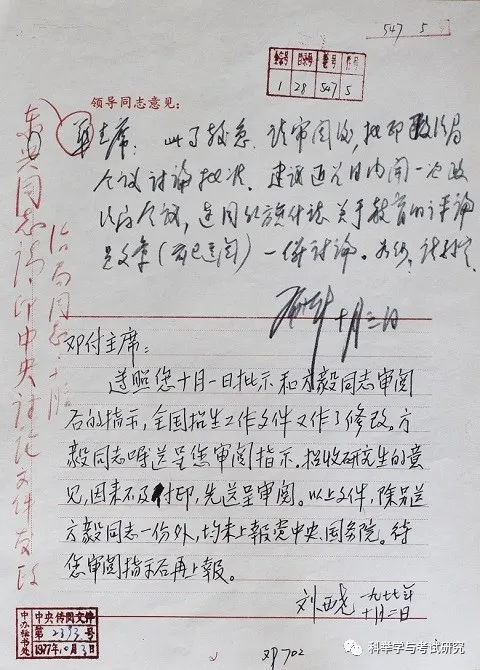 547 5
全宗号 目录号 卷号 件号
1 28 547 5
领导同志意见:
华主席:此事较急,请审阅后,批印政治局
会议讨论批准。建议近几日内开一次政
治局会议,连同红旗杂志关于教育的评论
员文章(前已送阅)一併讨论。妥否,请批示。
十月三日
东兴同志:请印中央讨论文件发政
治局同志。
邓付主席:
遵照您十月一日批示和方毅同志审阅
后的指示,全国招生工作文件又作了修改。方
毅同志嘱送呈您审阅指示。招收研究生的意
见,因来不及付印,先送呈审阅。以上文件,除另送
方毅同志一份外,均未上報党中央、国务院。待
您审阅指示后再上報。
刘西尧 一九七七年
十月二日
中办秘书处
中央传阅文件
第2393号
1977年10月3日
邓702
科举学与考试研究